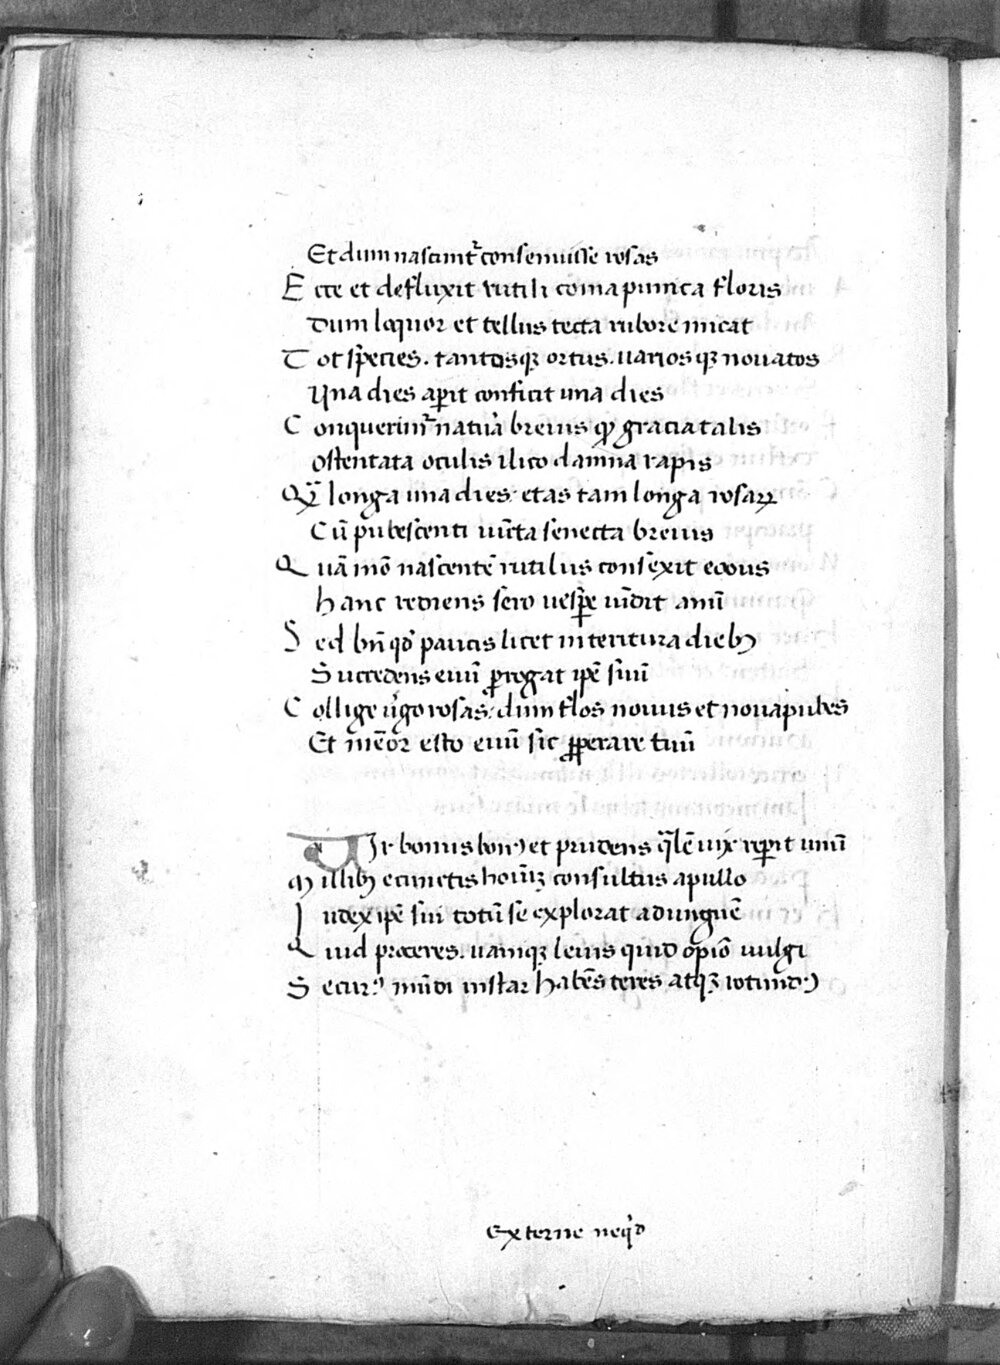 Et dum nascunt᷑ consenuisse rosas
Ecce et defluxit rutili coma punica floris
Dum loquor et tellus tecta rubore micat
Tot species. tantosqꝫ ortus. uarios qꝫ nouatos
Una dies aꝑit conficit una dies
Conquerimr᷑ natura breuis ꝙ gracia talis
Ostentata oculis ilico damna rapis
Qꝫ longa una dies. etas tam longa rosaꝝ
Cū pubescenti iūcta senecta breuis
Quā mō nascentē rutilus consexit eoous
Hanc rediens sero uesꝑe uidit anū
Sed bn̄ qd̓ paucis licet interitura diebꝫ
Succedens euū ꝓrogat ip̄e suū
Collige u̓go rosas. dum flos nouus et noua pubes
Et memōr esto euū sic ꝓꝑerare tuū
UIr bonus bonꝰ et prudens q̄lē uix reꝑit unū
Milibꝫ e cunctis hoīuꝫ consultus apullo
Iudex ip̄e sui totū se explorat ad unguē
Quid proceres. uanaqꝫ leuis quid opīo uulgi
Securꝰ mūdi instar habēs teres atqꝫ rotundꝰ
Externe neq̓d